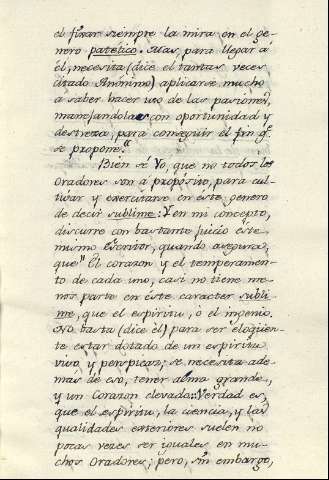 el fixar siempre la mira en el ge-
nero patético. Mas, para llegar á
él, necesita (dice el tantas veces
citado Anónimo) aplicarse mucho
á saber hacer uso de las pasiones,
manejandolas con oportunidad y
destreza, para conseguir el fin q.e
se propone."
Bien sé Yo, que no todos los
Oradores son á propósito, para cul-
tivar y exercitarse en este genero
de decir sublime: Y en mi concepto,
discurre con bastante juicio éste
mismo Escritor, quando asegura,
que" El corazon y el temperamen-
to de cada uno, casi no tiene me-
nor parte en éste caracter subli-
me, que el espiritu, ó el ingenio.
No basta (dice él) para ser eloqüen-
te estar dotado de un espiritu
vivo y perspicaz; se necesita ade-
mas de eso, tener alma grande,
y un Corazon elevado: Verdad es,
que el espiritu, la ciencia, y las
qualidades exteriores suelen no
pocas veces ser iguales en mu-
chos Oradores; pero, sin embargo,